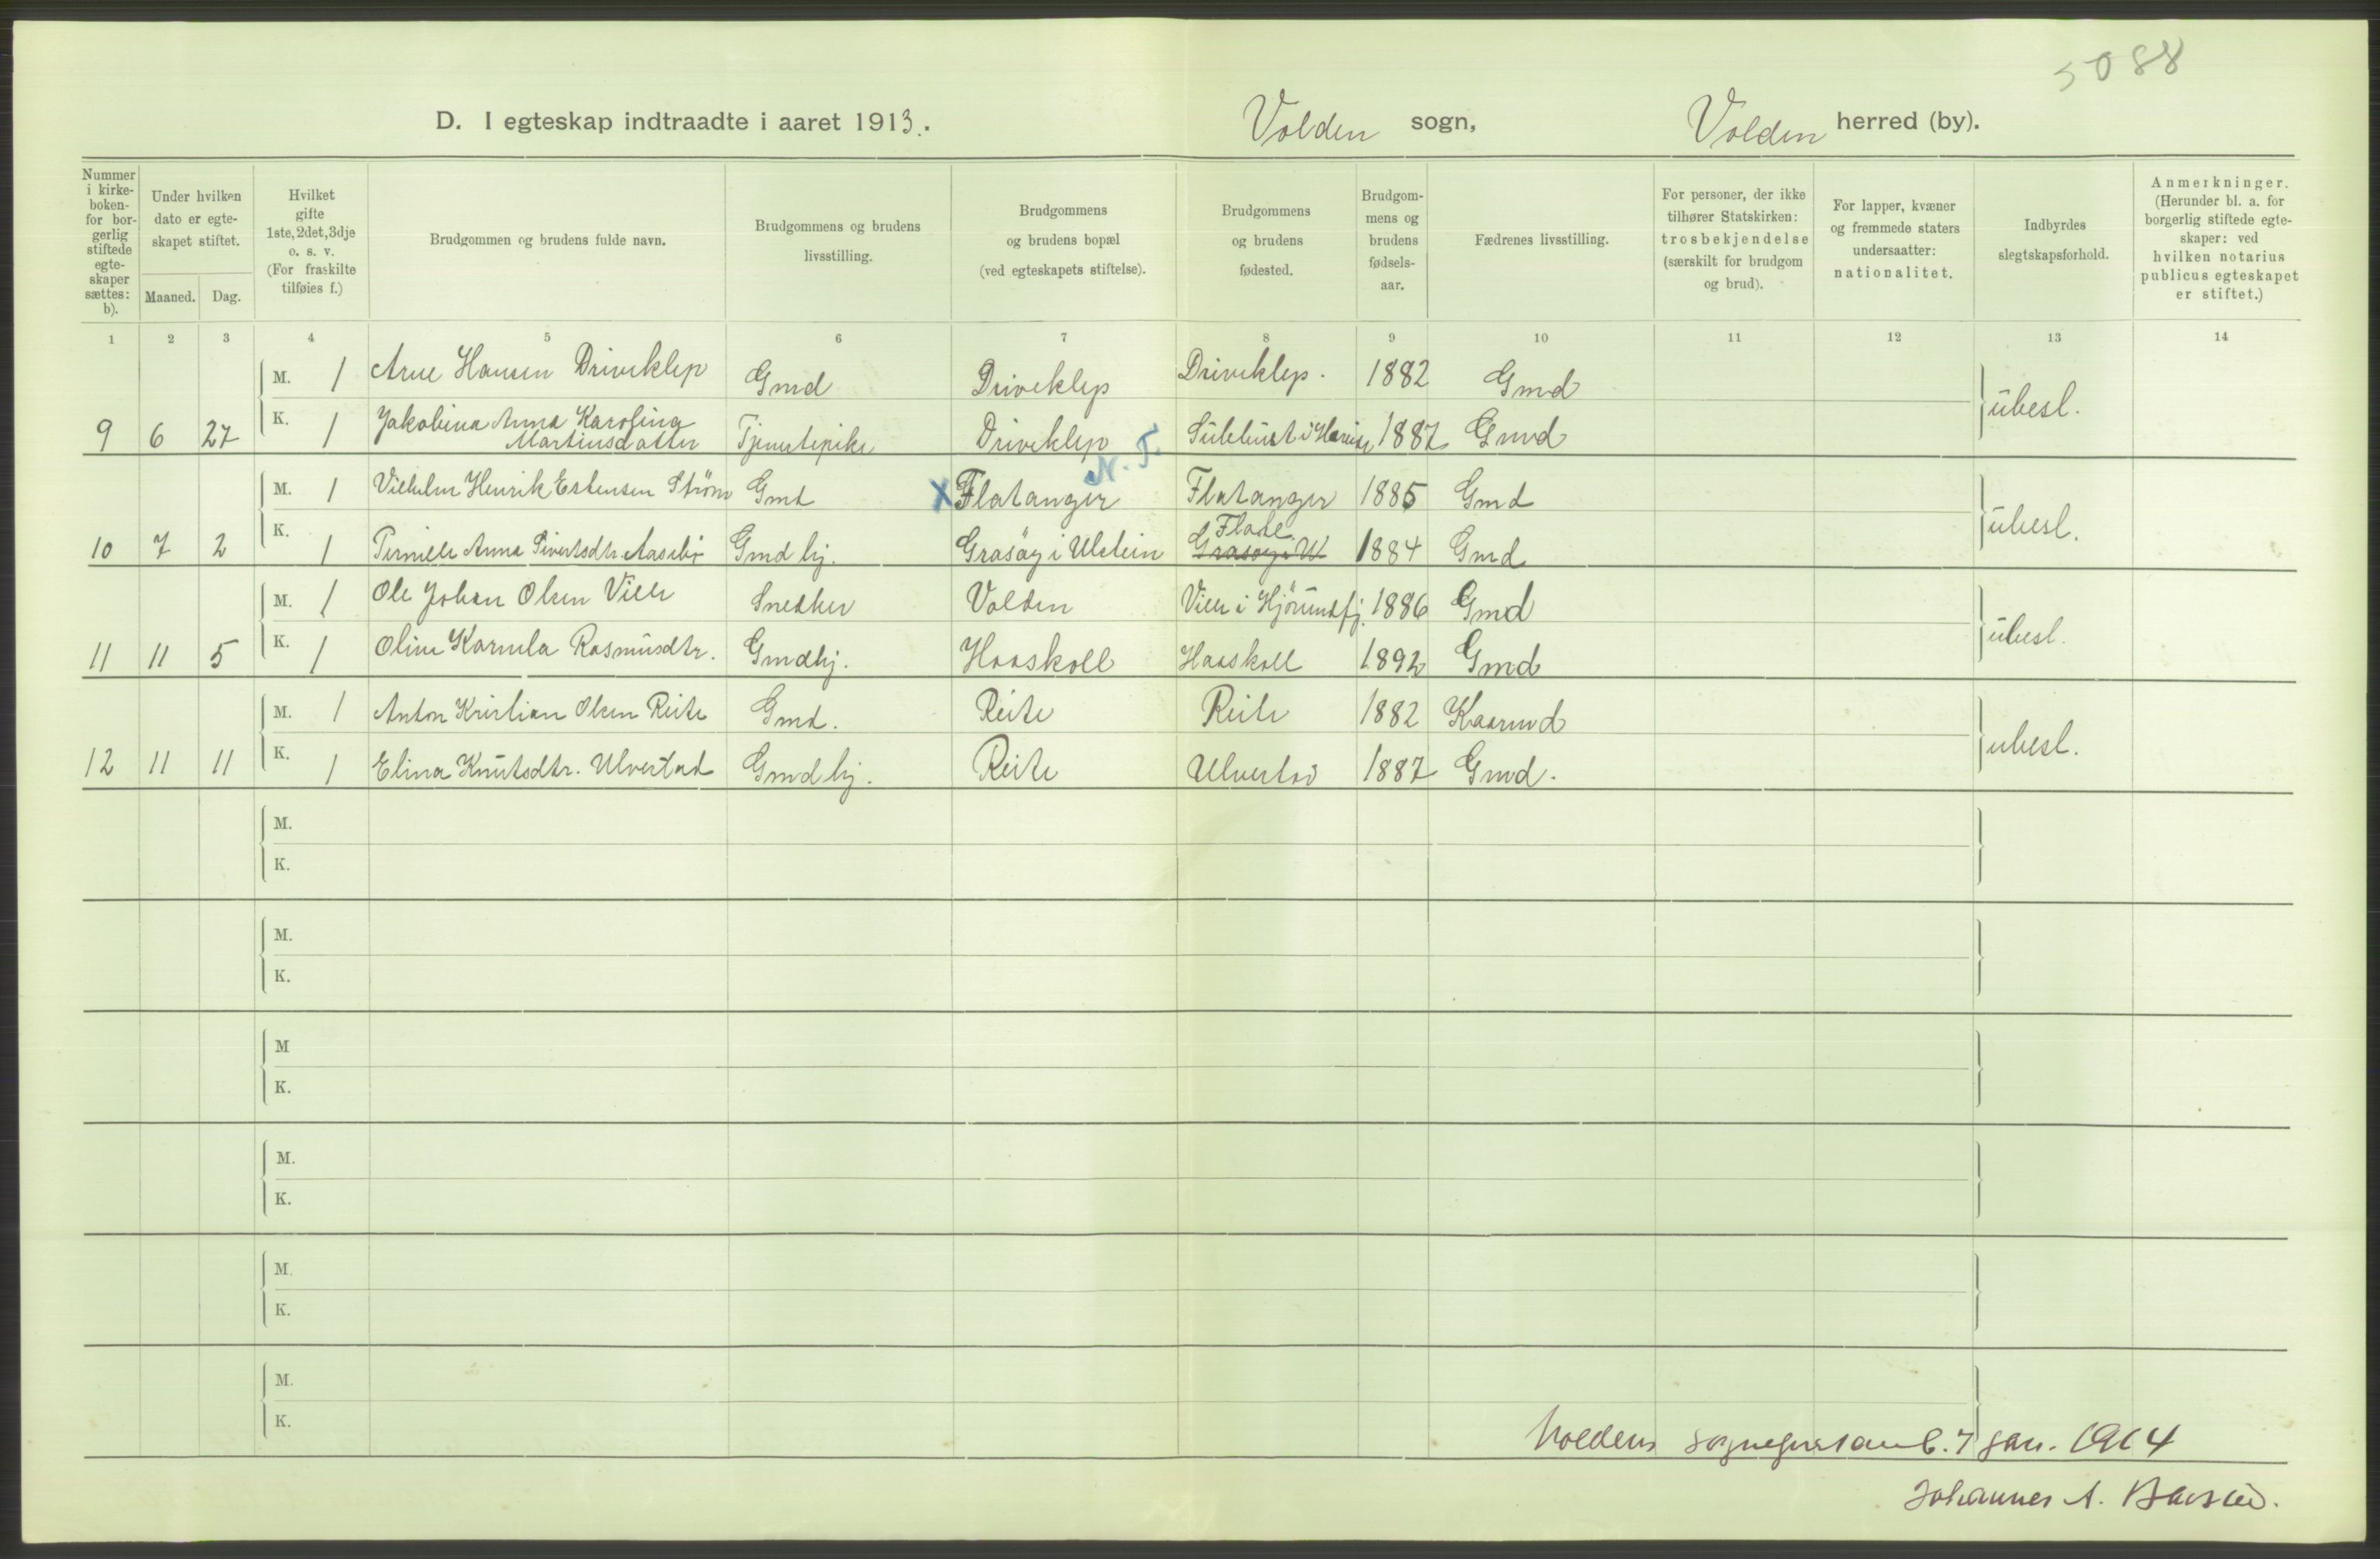 5088
D. I egteskap indtraadte i aaret 1913. Volden sogn, Volden herred (by).
Nummer i kirke-boken- for bor-gerlig stiftede egte-skaper sættes: b).
Under hvilken dato er egte-skapet stiftet.
Maaned. Dag.
Hvilket gifte 1ste, 2det, 3dje o. s. v. (For fraskilte tilføies f.)
Brudgommen og brudens fulde navn.
Brudgommens og brudens livsstilling.
Brudgommens og brudens bopæl (ved egteskapets stiftelse).
Brudgommens og brudens fødested.
Brudgom-mens og brudens fødsels-aar.
Fædrenes livsstilling.
For personer, der ikke tilhører Statskirken: trosbekjendelse (særskilt for brudgom og brud).
For lapper, kvæner og fremmede staters undersaatter: nationalitet.
Indbyrdes slegtskapsforhold.
Anmerkninger. (Herunder bl. a. for borgerlig stiftede egte-skaper: ved hvilken notarius publicus egteskapet er stiftet.)
1 2 3 4 5 6 7 8 9 10 11 12 13 14
M. 1 Arne Hansen Driveklep Gmd Driveklep Driveklep. 1882 Gmd
9 6 27 K. 1 Jakobina Anna Karolina Martinsdatter Tjenestepike Driveklep 1887 Gmd ubesl.
N. T.
M. 1 Vilhelm Henrik Estensen Strøm Gmd X Flatanger Flatanger 1885 Gmd
10 7 2 K. 1 Pernille Anna Sivertsdtr. Aasebø Gmd hj. Grasøy i Ulstein Flade 1884 Gmd ubesl.
M. 1 Ole Johan Olsen Viele Snedker Volden Viele i Hjørundfj. 1886 Gmd
11 11 5 K. 1 Oline Karnila Rasmusdtr. Gmdhj. Haaskoll Haaskoll 1892 Gmd ubesl.
M. 1 Anton Kristian Olsen Reite Gmd. Reite Reite 1882 Kaarmd
12 11 11 K. 1 Elina Knutsdtr. Ulvestad Gmd hj. Reite Ulvestad 1887 Gmd. ubesl.
M.
K.
M.
K.
M
K.
M.
K.
M.
K.
M.
K.
Voldens sogneprestemb. 7 jan. 1914
Johannes A.